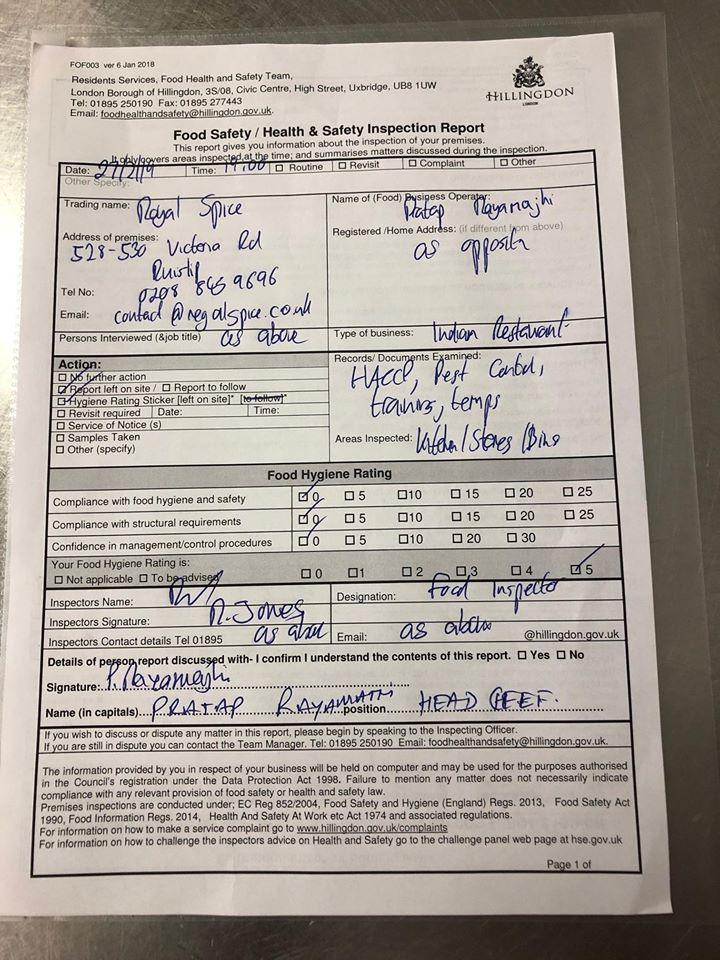 FOF003 ver 6 Jan 2018
Residents Services, Food Health and Safety Team,
London Borough of Hillingdon, 3S/08, Civic Centre, High Street, Uxbridge, UB8 1UW
Tel: 01895 250190 Fax: 01895 277443
Email: foodhealthandsafety@hillingdon.gov.uk.
HILLINGDON
LONDON
Food Safety / Health & Safety Inspection Report
This report gives you information about the inspection of your premises.
It only covers areas inspected at the time; and summarises matters discussed during the inspection.
Date: 27/2/19 Time: 19.00 □ Routine □ Revisit □ Complaint □ Other
Other Specify:
Trading name: Royal Spice
Name of (Food) Business Operator: Pratap Rayamajhi
Address of premises: 528-530 Victoria Rd
Ruislip
Registered /Home Address: (if different from above)
as opposite
Tel No: 0208 845 9696
Email: contact@regalspice.co.uk
Persons Interviewed (&job title) as above
Type of business: Indian Restaurant
Action:
□ No further action
☑ Report left on site / □ Report to follow
☑ Hygiene Rating Sticker [left on site]* [to follow]*
□ Revisit required Date: Time:
□ Service of Notice (s)
□ Samples Taken
□ Other (specify)
Records/ Documents Examined:
HACCP, Pest Control,
training, temps
Areas Inspected: Kitchen/Stores/Bins
Food Hygiene Rating
Compliance with food hygiene and safety ☑ 0 □ 5 □10 □ 15 □ 20 □ 25
Compliance with structural requirements ☑ 0 □ 5 □10 □ 15 □ 20 □ 25
Confidence in management/control procedures ☑ 0 □ 5 □10 □ 20 □ 30
Your Food Hygiene Rating is:
□ Not applicable □ To be advised □ 0 □1 □ 2 □ 3 □ 4 ☑ 5
Inspectors Name:
Designation: Food Inspector
Inspectors Signature: N. Jones
Inspectors Contact details Tel 01895 as above Email: as above @hillingdon.gov.uk
Details of person report discussed with- I confirm I understand the contents of this report. □ Yes □ No
Signature: P. Rayamajhi
Name (in capitals) PRATAP position HEAD CEEF.
If you wish to discuss or dispute any matter in this report, please begin by speaking to the Inspecting Officer.
If you are still in dispute you can contact the Team Manager. Tel: 01895 250190 Email: foodhealthandsafety@hillingdon.gov.uk.
The information provided by you in respect of your business will be held on computer and may be used for the purposes authorised
in the Council's registration under the Data Protection Act 1998. Failure to mention any matter does not necessarily indicate
compliance with any relevant provision of food safety or health and safety law.
Premises inspections are conducted under; EC Reg 852/2004, Food Safety and Hygiene (England) Regs. 2013, Food Safety Act
1990, Food Information Regs. 2014, Health And Safety At Work etc Act 1974 and associated regulations.
For information on how to make a service complaint go to www.hillingdon.gov.uk/complaints
For information on how to challenge the inspectors advice on Health and Safety go to the challenge panel web page at hse.gov.uk
Page 1 of